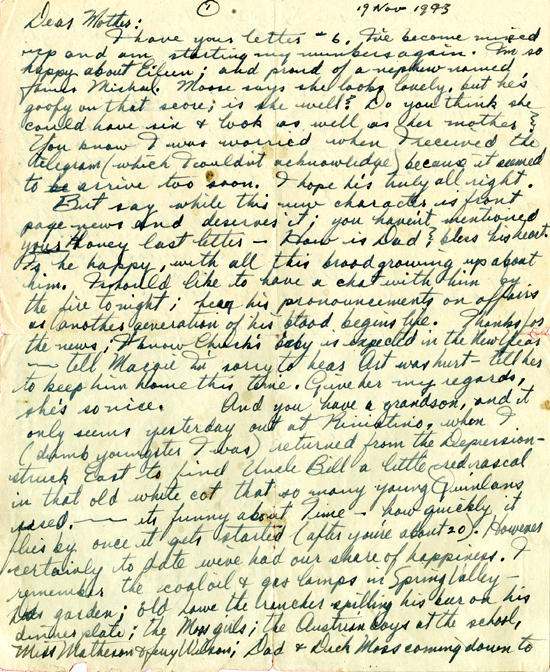 ①
19 Nov 1943
Dear Mother:
I have your letter #6. I've become mixed
up and am starting my numbers again. I'm so
happy about Eileen; and proud of a nephew named
James Michael. Moose says she looks lovely, but he's
goofy on that score; is she well? Do you think she
could have six & look as well as her mother?
You know I was worried when I received the
telegram (which I couldn't acknowledge) because it seemed
to be arrive too soon. I hope he's truly all right.
But say while this new character is front
page news and deserves it; you haven't mentioned
your Honey last letter — How is Dad? bless his heart
Is he happy, with all this brood growing up about
him. I should like to have a chat with him by
the fire tonight; hear his pronouncements on affairs
as another generation of his blood begins life. Thanks for
the news; I know Chuck's baby is expected in the New Year
— tell Margie I'm sorry to hear Art was hurt — tell her
to keep him home this time. Give her my regards,
she's so nice. And you have a grandson, and it
only seems yesterday out at Kinistino, when I
(dumb youngster I was) returned from the Depression-
struck East to find Uncle Bill a little red rascal
in that old white cot that so many young Quinlans
used. — its funny about Time — how quickly it
flies by once it gets started (after you're about 20). However
certainly to date we've had our share of happiness. I
remember the cool oil & gas lamps in Spring Valley —
garden; old Howe the rancher spilling his ear on his
dinner plate; the Moss girls; the Austrian boys at the school,
Miss Matheson & Wilson; Dad & Dick Moss coming down to